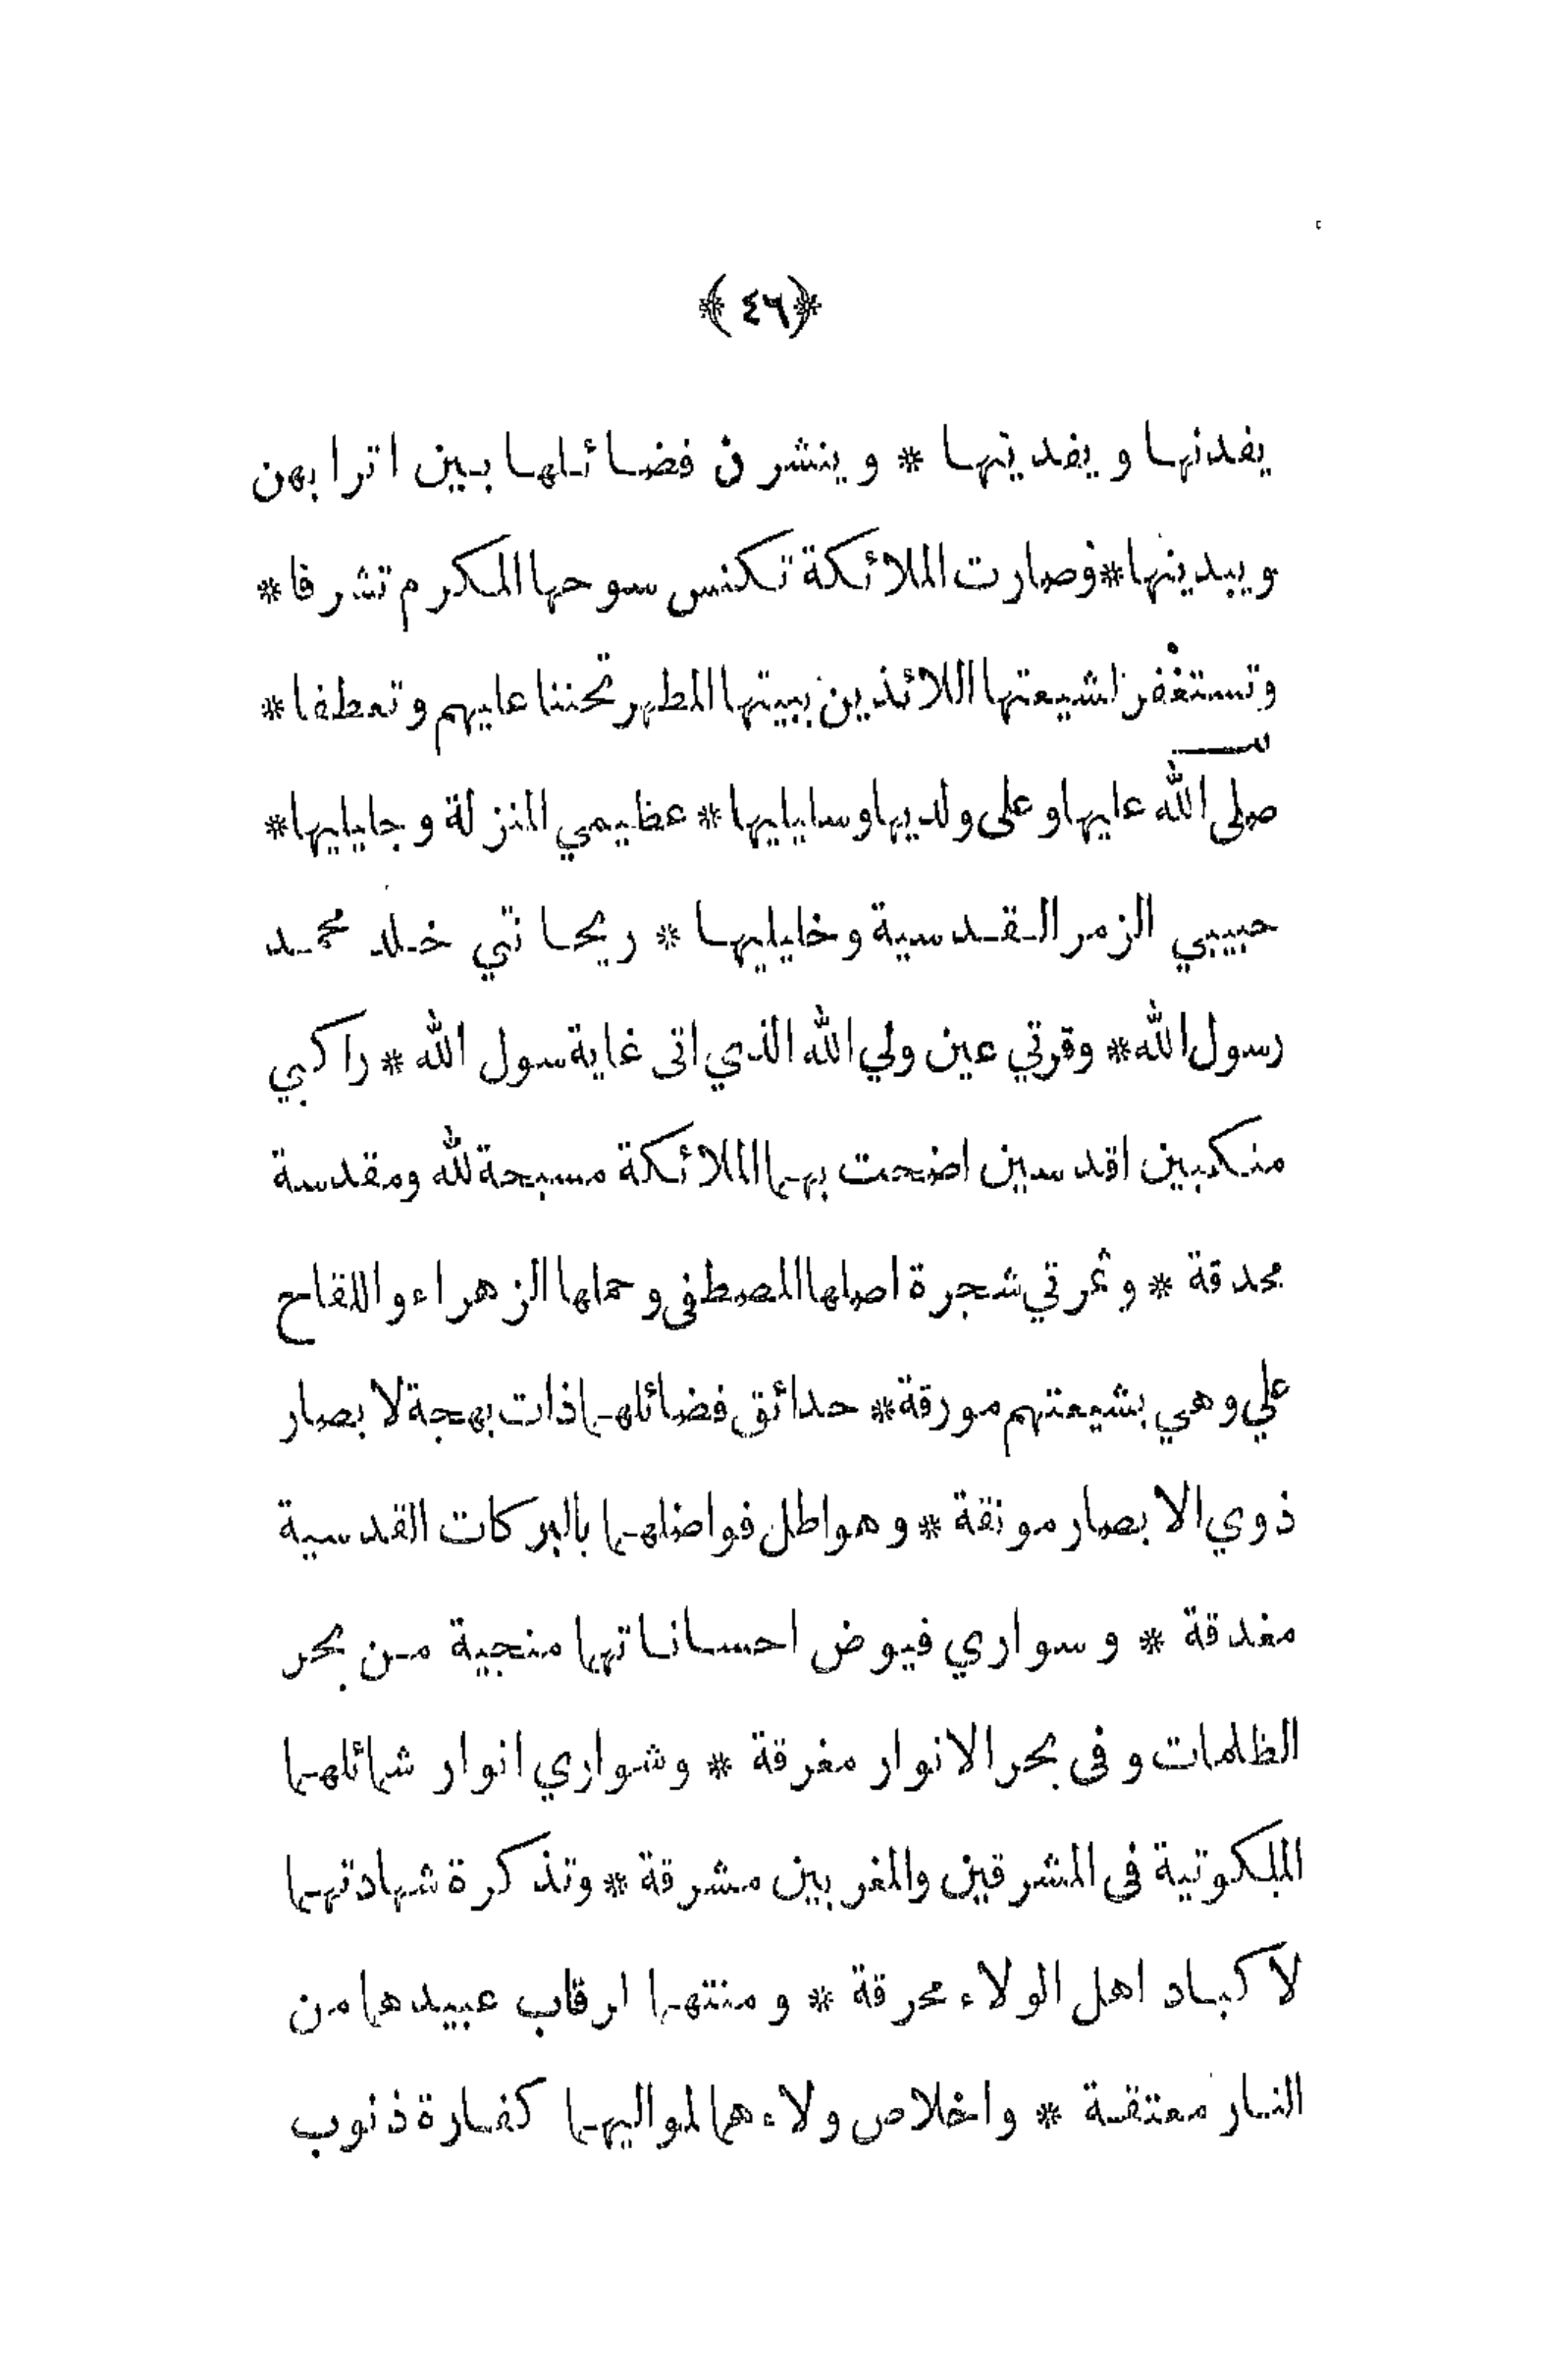 ﴿٤٦﴾
يفدنها ويفدينها * وينشرن فضائلها بين اترابهن
ويبدينها * فصارت الملائكة تكنس سوحها المكرم تشرفا *
وتستغفر لشيعتها اللائذين ببيتها المطهر تحننا عليهم وتعطفا *
صلى الله عليها وعلى ولديها وسليليها * عظيمي المنزلة وجليليها *
حبيبي الزمر القدسية وخليليها * ريحانتي خلد محمد
رسول الله * وقرتي عين ولي الله الذي اتى غاية سول الله * راكبي
منكبين اقدسين اضحت بهما الملائكة مسبحة لله ومقدسة
محدقة * وثمرتي شجرة اصلها المصطفى وحملها الزهراء واللقاح
علي وهي بشيعتهم مورقة * حدائق فضائلهما ذات بهجة لابصار
ذوي الابصار مونقة * وهواطل فواضلهما بالبركات القدسية
مغدقة * وسواري فيوض احساناتهما منجية من بحر
الظلمات وفى بحر الانوار مغرقة * وشواري انوار شمائلهما
الملكوتية فى المشرقين والمغربين مشرقة * وتذكرة شهادتهما
لاكباد اهل الولاء محرقة * ومنتهما لرقاب عبيدهما من
النار معتقة * واخلاص ولاءهما لمواليهما كفارة ذنوب